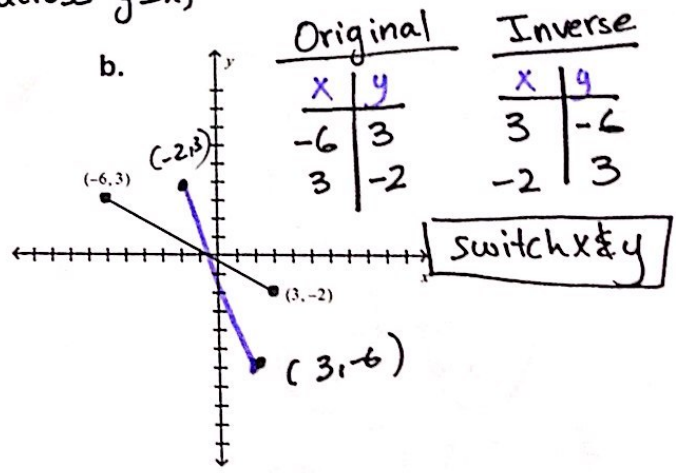 across y=x,
b.
Original
x y
-6 3
3 -2
Inverse
x y
3 -6
-2 3
switch x & y
y
(-2,3)
(-6,3)
x
(3,-2)
(3,-6)